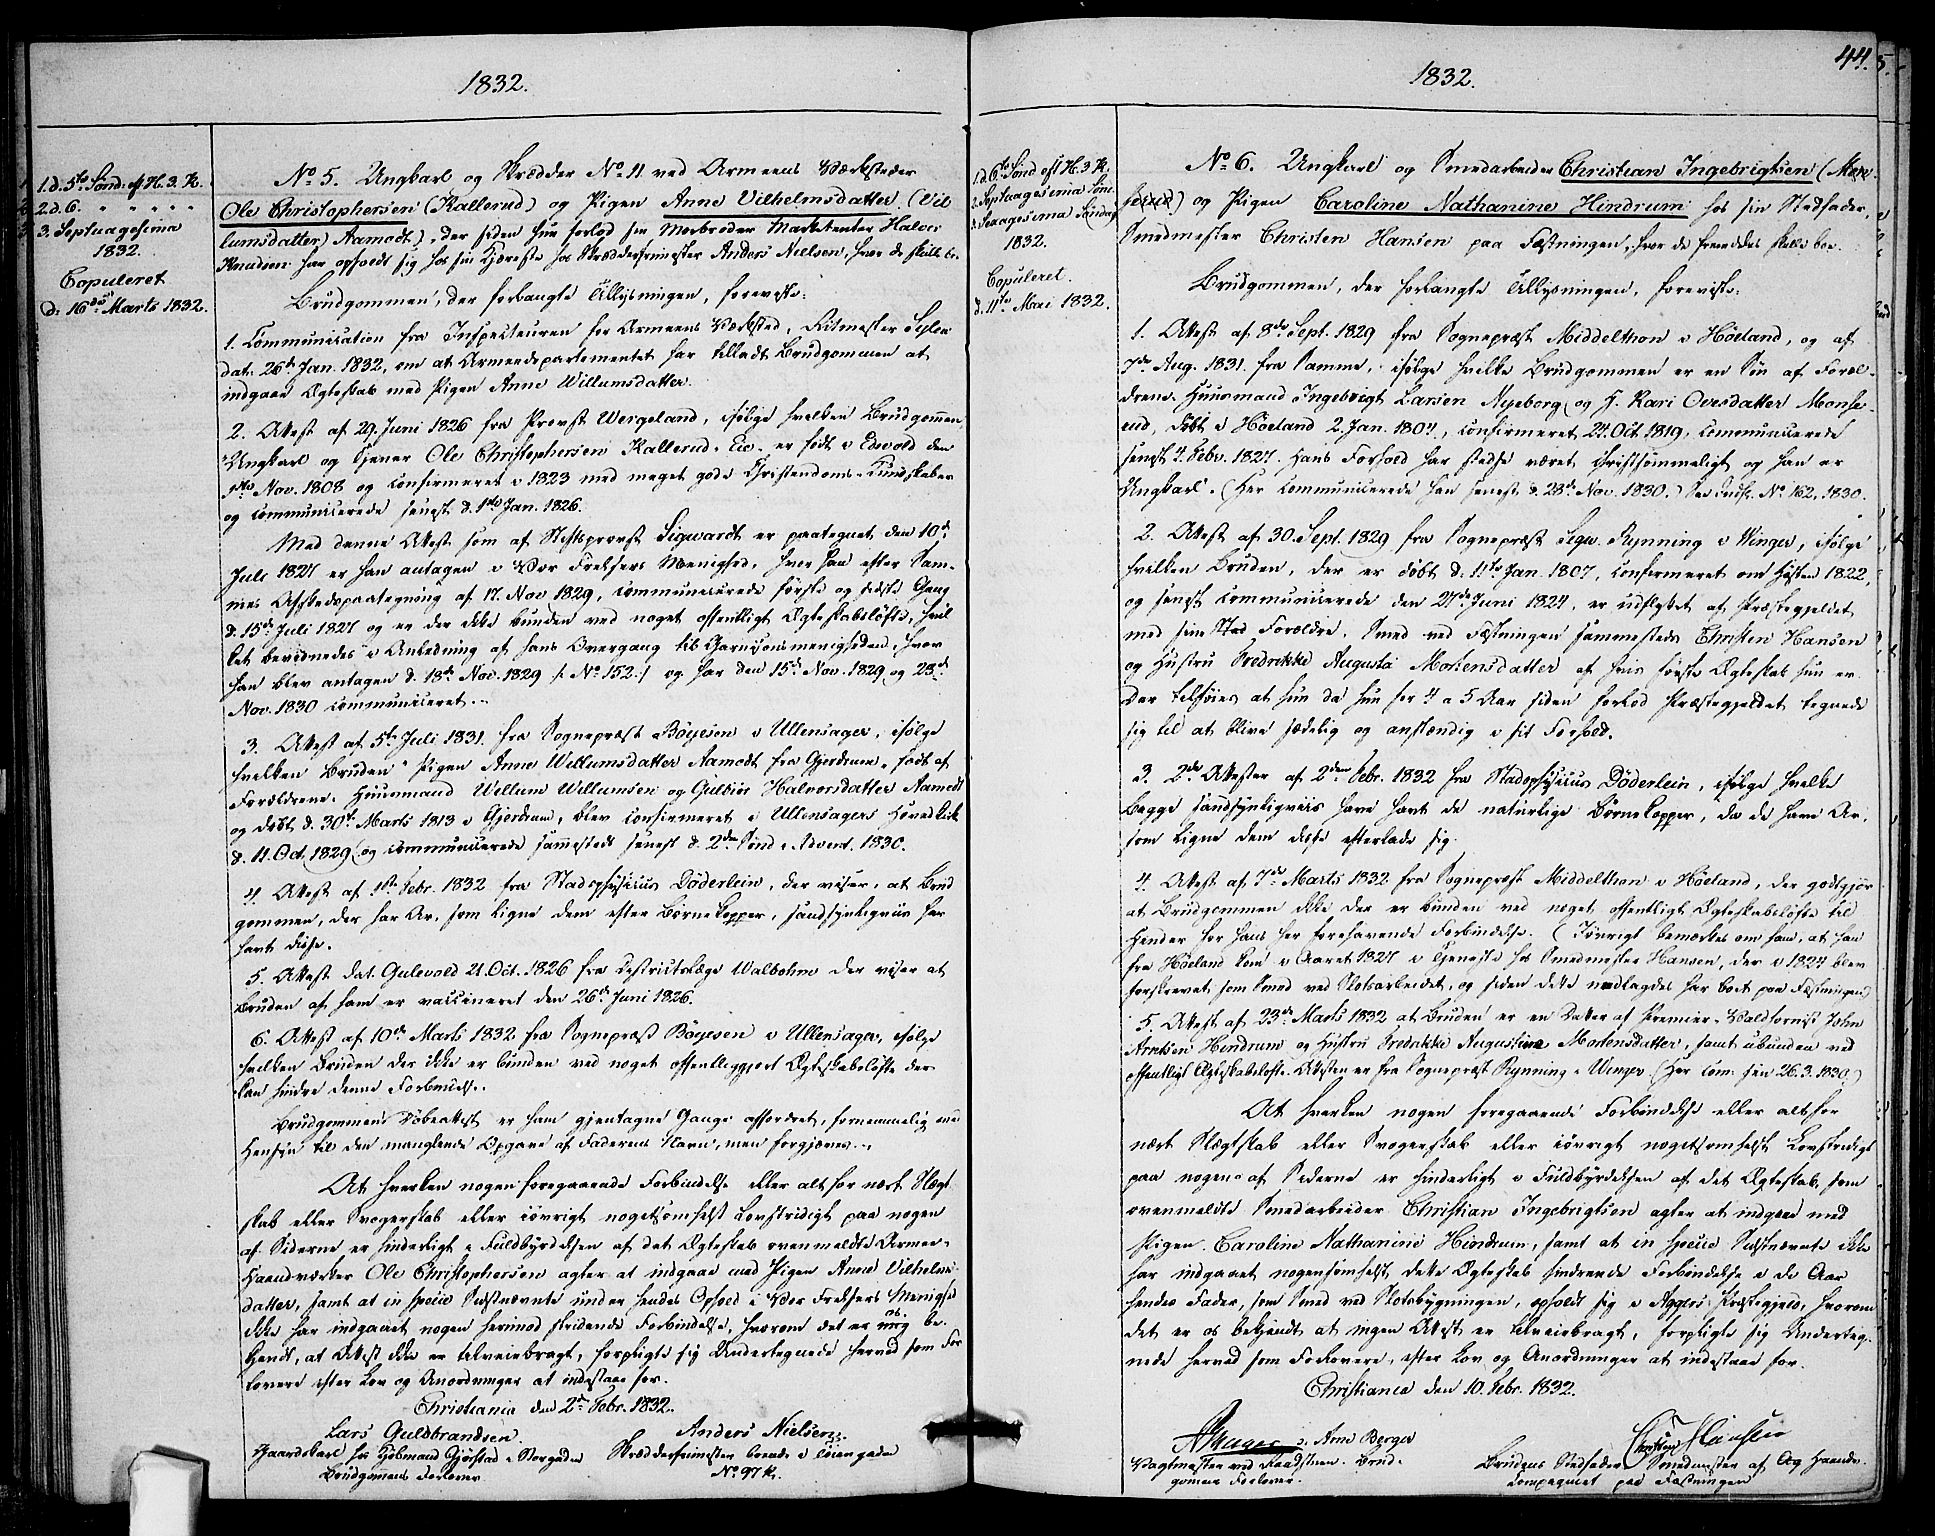 1832.
1. d. 5te Sønd: eft H. 3. K.
2. d. 6. " " " " "
3. Septuagesima
1832.
Copuleret
d: 16de Marts 1832.
No 5. Ungkarl og Skrædder No 11 ved Armeens Værksteder
Ole Christophersen (Kallerud) og Pigen Anne Vilhelmsdatter (Vil
lumsdatter) Aamodt), der siden hun forlod sin Morbroder Marketenter Halvor
Knudsen har opholdt sig hos sin Kjæreste hos Skræddermester Anders Nielsen, hvor de skulle bo.
Brudgommen, der forlangte Tillysningen, foreviste:
1. Communication fra Inspecteuren for Armeens Værksted, Ritmester
dat. 26de Jan. 1832, om at Armeedepartementet har tilladt Brudgommen at
indgaae Ægteskab med Pigen Anne Willumsdatter.
2. Attest af 29. Juni 1826 fra Provst Wergeland, ifølge hvilken Brudgommen
"Ungkarl og Tjener Ole Christophersen Kallerud- Eie- er født i Edsvold den
1ste Nov. 1808 og confirmeret i 1823 med meget gode Christendoms-Kundskaber
og communicerede senest d. 1ste Jan. 1826.
Med denne Attest som af Stiftsprovst Sigwardt er paategnet den 10de
Juli 1827 er han antagen i Vor Frelsers Menighed, hvor han efter Sam-
mes Afskedspaategning af 17. Nov 1829, communicerede første og sidste Gang
d. 15de Juli 1827 og er der ikke bunden ved noget offentligt Ægteskabsløfte, hvil
ket bevidnedes i Anledning af hans Overgang til Garnisonsmenigheden, hvor
han blev antagen d. 18de Nov. 1829 /: No 152:/ og har den 15de Nov. 1829 og 28de
Nov. 1830 communiceret.
3. Attest af 5te Juli 1831. fra Sognepræst Böyesen i Ullensager, ifølge
hvilken Bruden "Pigen Anne Willumsdatter Aamodt fra Gjerdrum, født af
Forældrene: Huusmand Willum Willumsen og Guldbor Halvorsdatter Aamodt
og døbt d. 30te Marts 1813 i Gjerdrum, blev confirmeret i Ullensagers Hovedkirke
d. 11. Oct. 1829 og communicerede sammesteds senest d. 2den Sønd. i Advent. 1830.
4. Attest af 1ste Febr. 1832 fra Stadsphysicus Döderlein, der viser, at Brud
gommen, der har Ar, som ligne dem efter Børnekopper, sandsynligviis har
havt disse.
5. Attest dat. Gulevold 21. Oct. 1826 fra Districtslæge Walbohm der viser at
Bruden af ham er vaccineret den 26de Juni 1826.
6. Attest af 10de Marts 1832 fra Sognepræst Böyesen i Ullensager, ifølge
hvilken Bruden der ikke er bunden ved noget offentliggjort Ægteskabsløfte der
kan hindre denne Forbindelse.
Brudgommens Døbeattest er ham gjentagne Gange affordret, fornemmelig med
Hensyn til den manglende Opgave af Faderens Navn, men forgjæves.
At hverken nogen foregaaende Forbindelse eller alt for nært Slægt
skab eller Svogerskab eller iøvrigt nogetsomhelst Lovstridigt paa nogen
af Siderne er hinderligt i Fuldbyrdelsen af det Ægteskab ovenmeldte Armee-
Haandværker Ole Christophersen agter at indgaae med Pigen Anne Vilhelms-
datter, samt at in specie Sidstnævnte under hendes Ophold i Vor Frelsers Menighed
ikke har indgaaet nogen herimod stridende Forbindelse, hvorom det er os be-
kjendt, at Attest ikke er tilveiebragt, forpligte sig Undertegnede herved som For
lovere efter Lov og Anordninger at indestaae for.
Christiania den 2den Febr. 1832.
Lars Guldbrandsen
Gaardskarl hos Kjøbmand Gjørstad i Storgaden
Brudgommens Forlover
Anders Nielsen
Skræddermester boende i Toiengaden
No 97 K.
44.
1832.
1. d. 6te Sønd eft H. 3 K.
2. Septuagesima Sønd.
3. Sexagesima Søndag
1832.
Copuleret.
d. 11te Mai 1832.
No 6. Ungkarl og Smedarbeider Christian Ingebrigtsen (Mon-
serud) og Pigen Caroline Nathanine Hindrum hos sin Stedfader,
Smedmester Christen Hansen paa Fæstningen, hvor de fremdeles skulle boe.
Brudgommen, der forlangte Tillysningen, foreviste:
1. Attest af 8de Sept. 1829 fra Sognepræst Middelthon i Höeland, og af
7de Aug. 1831 fra Samme, ifølge hvilke Brudgommen er en Søn af Foræl-
drene: Huusmand Ingebrigt Larsen Nyeborg og H. Kari Oersdatter Monse-
rud, døbt i Höeland 2. Jan. 1804, confirmeret 24. Oct. 1819, communicerede
senest 4. Febr. 1827. Hans Forhold har stedse været christsømmeligt og han er
Ungkarl. (Her communicerede han senest d. 28de Nov. 1830.) See Indf. No 162, 1830.
2. Attest af 30. Sept. 1829 fra Sognepræst Rynning i Winger, ifølge
hvilken Bruden, der er døbt d: 11te Jan. 1807, confirmeret om Høsten 1822,
og senest communicerede den 27de Juni 1824, er udflyttet af Præstegjeldet
med sine Sted Forældre, Smed ved Fæstningen sammesteds Christen Hansen
og Hustru Fredrikke Augusta Mortensdatter af hvis første Ægteskab hun er.
Der tilføies at hun da hun for 4 a 5 Aar siden forlod Præstegjeldet tegnede
sig til at blive sædelig og anstændig i sit Forhold.
3. 2de Attester af 2den Febr. 1832 fra Stadsphysicus Döderlein, ifølge hvilke
begge sandsynligviis have havt de naturlige Børnekopper, da de have Ar,
som ligne dem disse efterlade sig.
4. Attest af 7de Marts 1832 fra Sognepræst Middelthon i Höeland, der godtgjør
at Brudgommen ikke der er bunden ved noget offentligt Ægteskabsløfte til
Hinder for hans her forehavende Forbindelse. (Iøvrigt bemærkes om ham, at han
fra Höeland kom i Aaret 1827 i Tjeneste hos Smedmester Hansen, der i 1824 blev
forskrevet som Smed ved Slotsarbeidet, og siden dette nedlagdes har boet paa Fæstningen)
5. Attest af 23de Marts 1832 at Bruden er en Datter af Premier-Valdhornist John
Arntsen Hindrum og Hustru Fredrikke Augustine Mortensdatter, samt ubunden ved
offentligt Ægteskabsløfte. Attesten er fra Sognepræst Rynning i Winger. (Her com: sen 26. 3. 1830.)
At hverken nogen foregaaende Forbindelse eller alt for
nært Slægtskab eller Svogerskab eller iøvrigt nogetsomhelst Lovstridigt
paa nogen af Siderne er hinderligt i Fuldbyrdelsen af det Ægteskab, som
ovenmeldte Smedarbeider Christian Ingebrigtsen agter at indgaae med
Pigen Caroline Nathanine Hindrum, samt at in specie Sidstnævnte ikke
har indgaaet nogensomhelst dette Ægteskab hindrende Forbindelse i de Aar
hendes Fader, som Smed ved Slotsbygningen, opholdt sig i Aggers Præstegjeld, hvorom
det er os bekjendt at ingen Attest er tilveiebragt, forpligte sig Underteg-
nede herved som Forlovere, efter Lov og Anordninger at indestaae for.
Christiania den 10. Febr. 1832.
Arne Berger
Vagtmester ved Raadstuen. Brud-
gommens Forlover.
Christen Hansen
Brudens Stedfader Smedmester af Haandv.
Compagniet paa Fæstningen